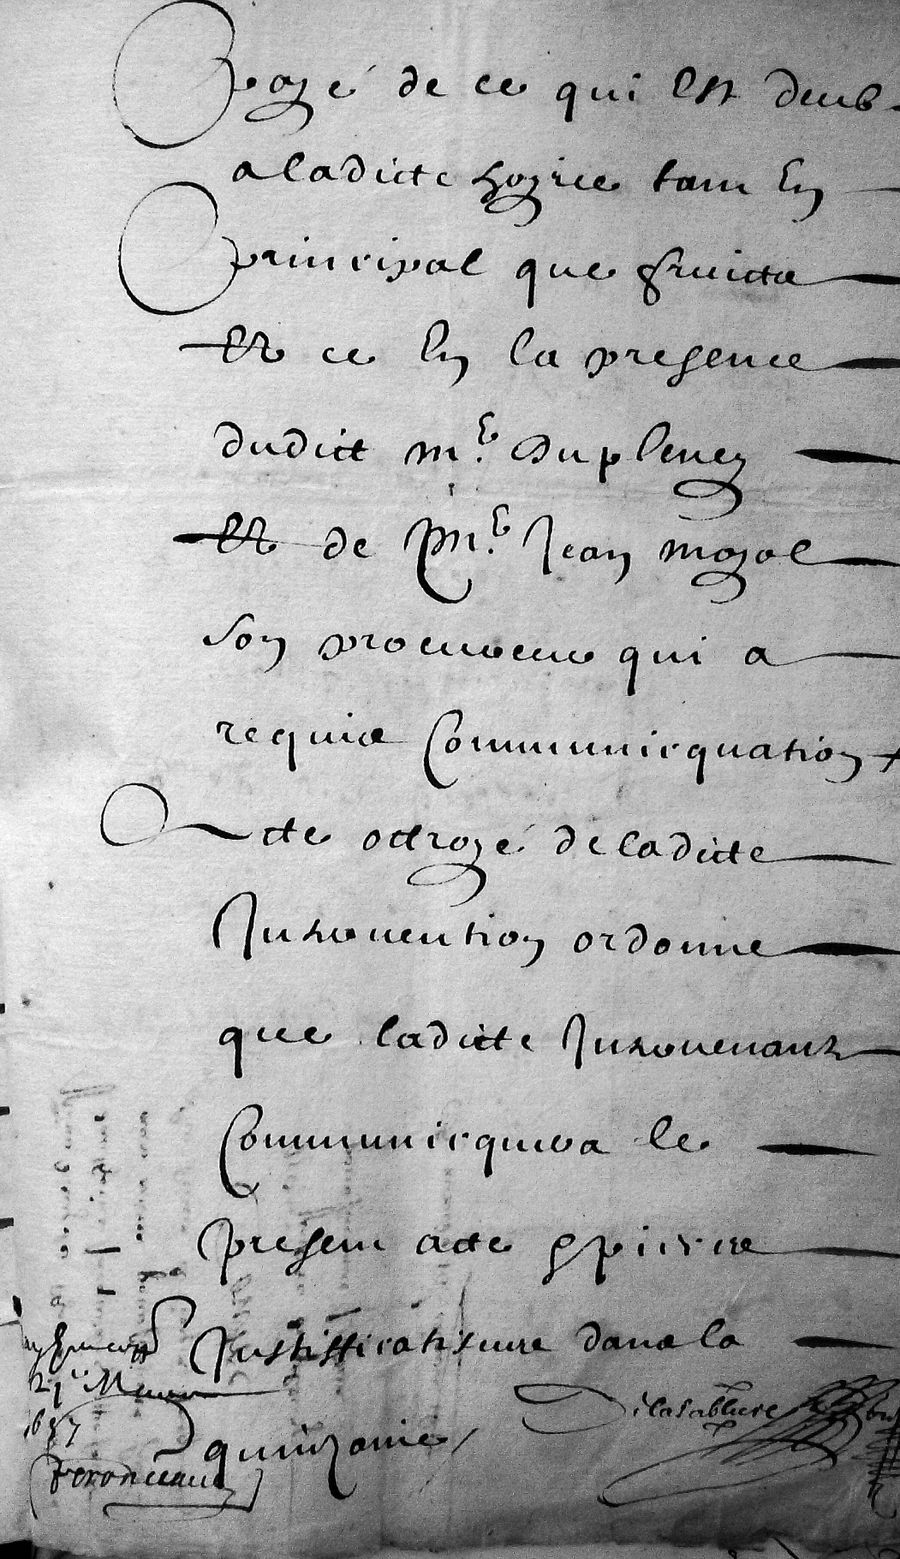 payé de ce qui est deub
a ladicte hoyrie tant en
principal que fruictz
Et ce en la presence
dudict me. Dupleney
Et de Me. Jean Mazal
son procureur qui a
requis Communicquation
Acte octroyé de ladicte
Intervention ordonne
que ladicte Intervenante
Communicquera le
present acte & pieces
Justifficatisves dans la
quinzaine
Delasabliere
1657